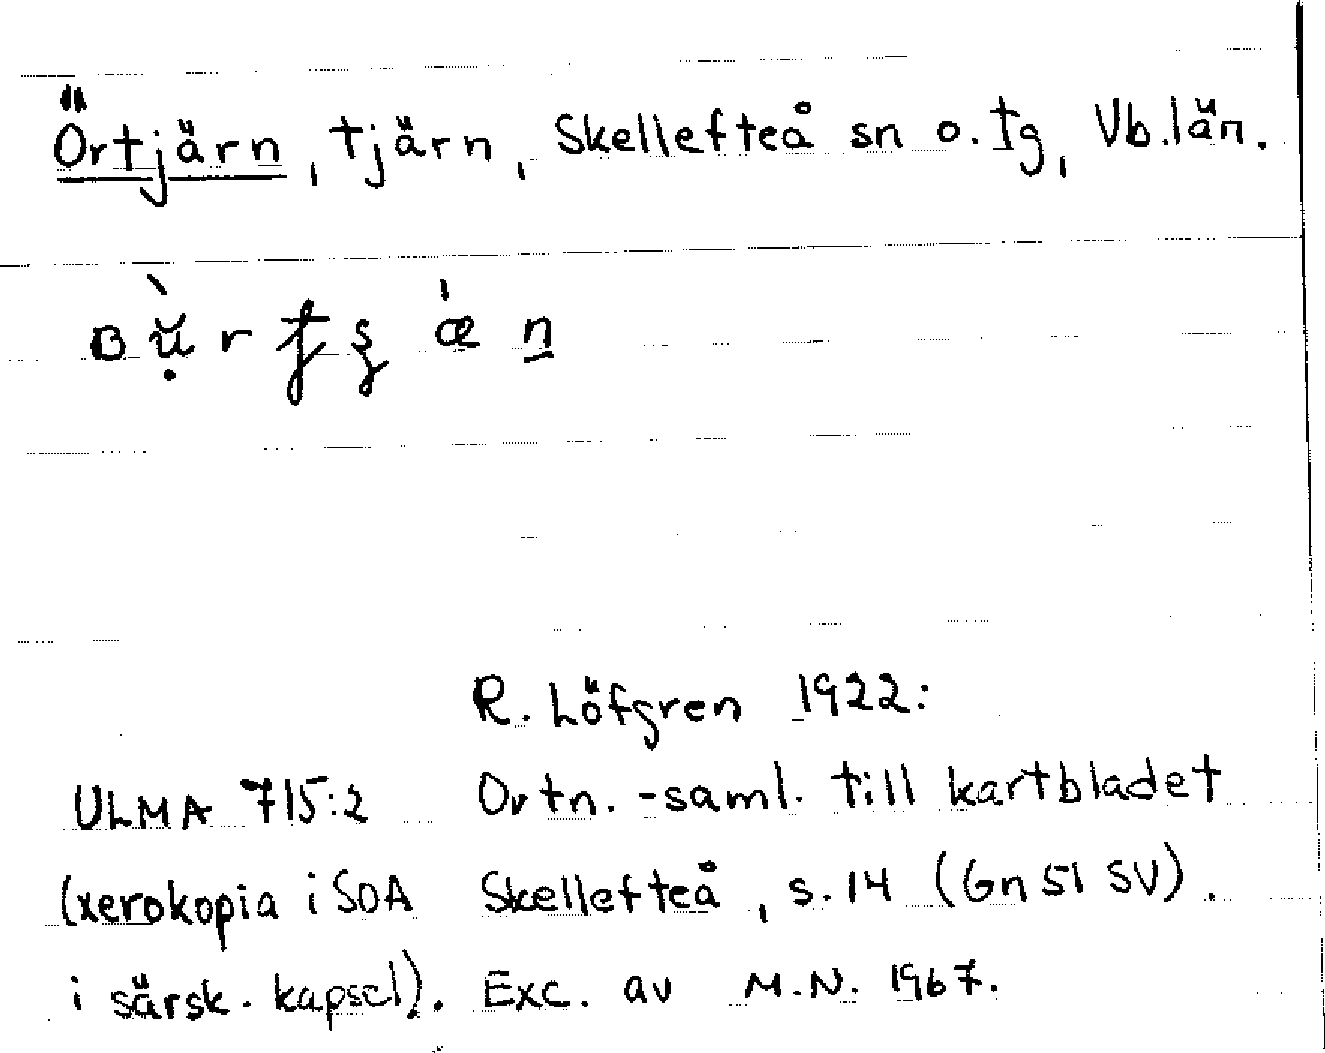 Örtjärn, tjärn, Skellefteå sn o. tg, Vb. län.
R. Löfgren 1922:
ULMA 715:2 Ortn.-saml. till kartbladet
(xerokopia i SOA Skellefteå, s. 14 (Gn 51 SV).
i särsk. kapsel). Exc. av M.N. 1967.